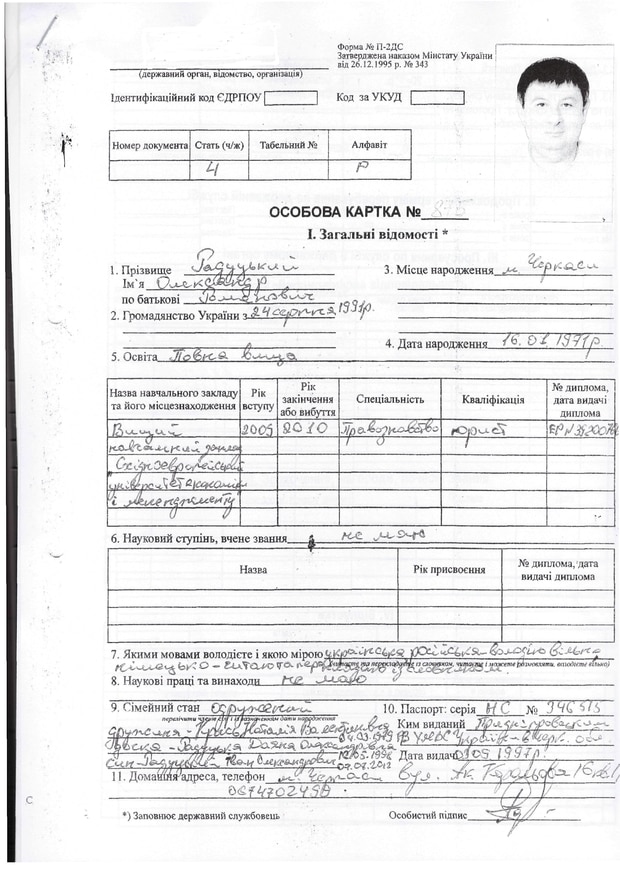 Форма № П-2ДС
Затверджена наказом Мінстату України
від 26.12.1995 р. № 343
(державний орган, відомство, організація)
Ідентифікаційний код ЄДРПОУ Код за УКУД
Номер документа Стать (ч/ж) Табельний № Алфавіт
Ч Р
ОСОБОВА КАРТКА № 875
I. Загальні відомості *
1. Прізвище Радуцький
Ім`я Олександр
по батькові Романович
2. Громадянство України з 24 серпня 1991р.
3. Місце народження м. Черкаси
4. Дата народження 16.01.1971р.
5. Освіта Повна вища
Назва навчального закладу та його місцезнаходження Рік вступу Рік закінчення або вибуття Спеціальність Кваліфікація № диплома, дата видачі диплома
Вищий 2005 2010 Правознавство юрист
навчальний заклад
Східноєвропейський
університет економіки
і менеджменту
6. Науковий ступінь, вчене звання не маю
Назва Рік присвоєння № диплома, дата видачі диплома
7. Якими мовами володієте і якою мірою українська російська - володію вільно
німецько - читаю та перекладаю з словником
(читаєте та перекладаєте із словником, читаєте і можете розмовляти, володієте вільно)
8. Наукові праці та винаходи не маю
9. Сімейний стан одружений
перелічити членів сім'ї із зазначенням дати народження
дружина - Наталія Валентинівна
04.03.1979
Радуцька Олександрівна
12.05.1996
син - Радуцький Іван Олександрович
07.08.2012
10. Паспорт: серія НС №
Ким виданий Придніпровським
РВ УМВС України в Черк. обл
Дата видачі 1997р.
11. Домашня адреса, телефон м. Черкаси вул. Ак. Корольова
0674702490
*) Заповнює державний службовець Особистий підпис